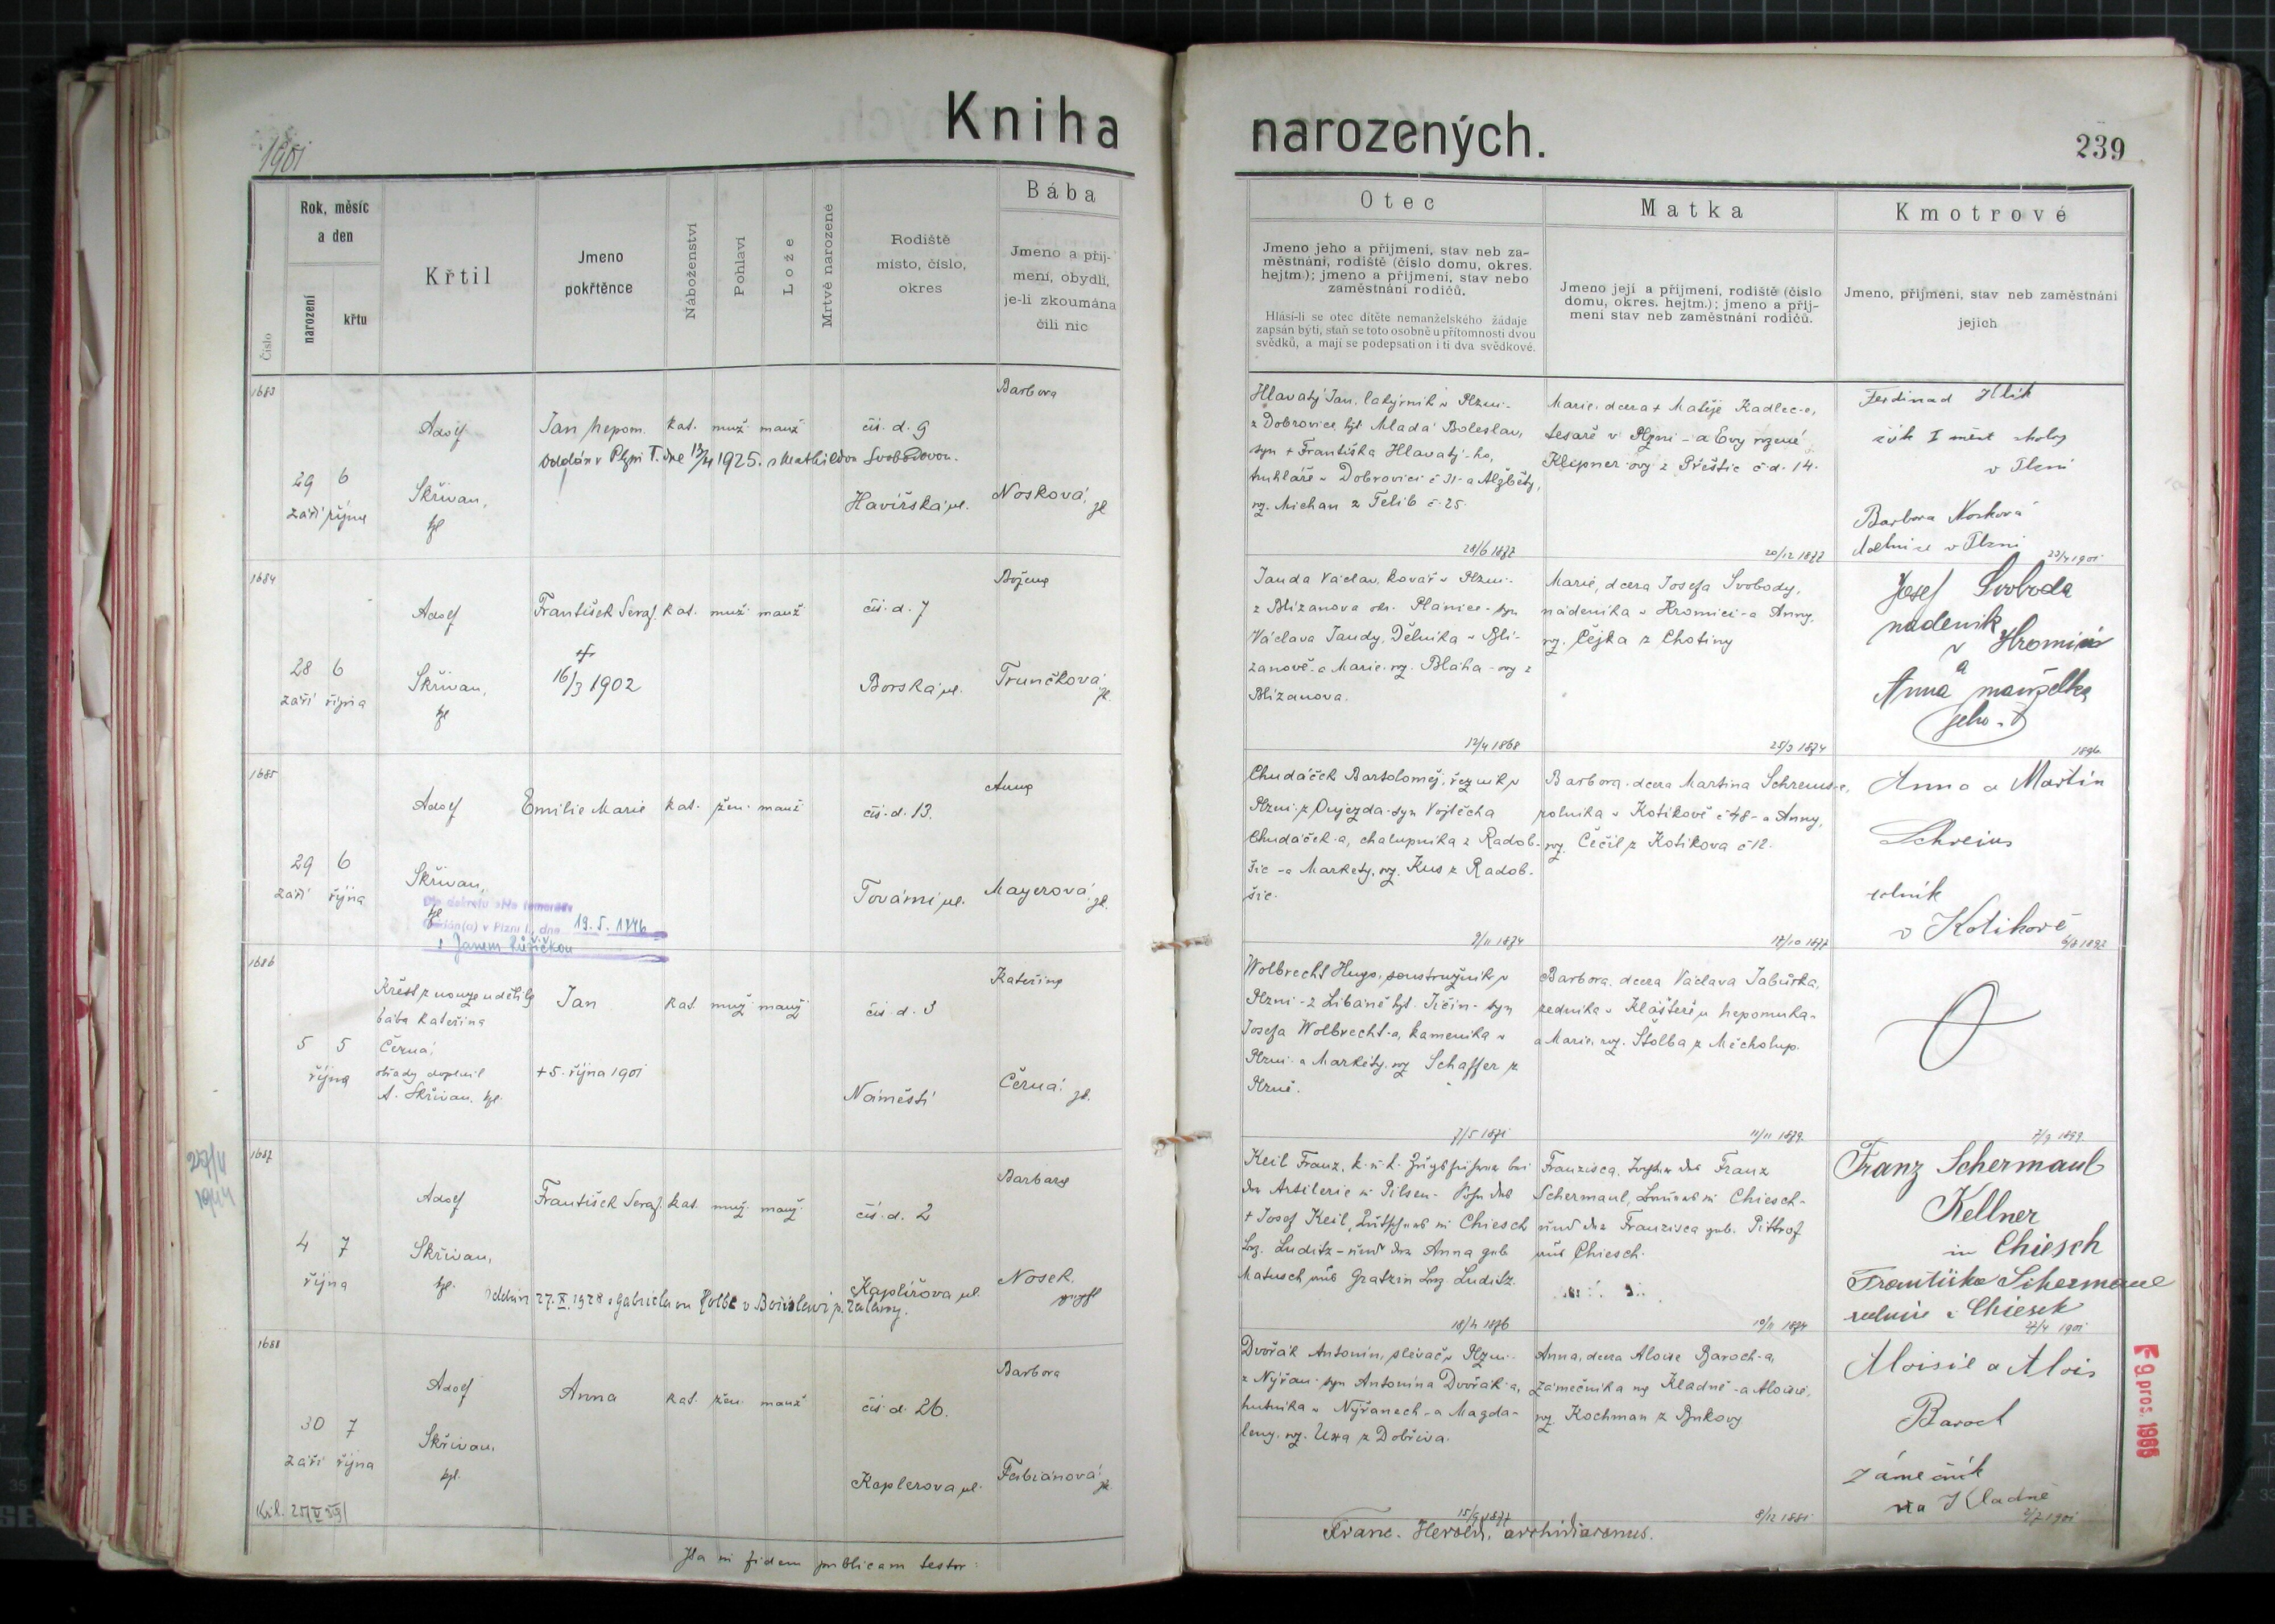 1901
Kniha
narozených.
239
Číslo
Rok, měsíc
a den
narození
křtu
Křtil
Jmeno
pokřtěnce
Náboženství
Pohlaví
Lože
Mrtvě narozené
Rodiště
místo, číslo,
okres
Bába
Jmeno a příj-
mení, obydlí,
je-li zkoumána
čili nic
Otec
Jmeno jeho a příjmení, stav neb za-
městnání, rodiště (číslo domu, okres.
hejtm.); jmeno a příjmení, stav nebo
zaměstnání rodičů.
Hlásí-li se otec dítěte nemanželského žádaje
zapsán býti, staň se toto osobně u přítomnosti dvou
svědků, a mají se podepsati on i ti dva svědkové.
Matka
Jmeno její a příjmení, rodiště (číslo
domu, okres. hejtm.); jmeno a příj-
mení stav neb zaměstnání rodičů.
Kmotrové
Jmeno, příjmení, stav neb zaměstnání
jejich
1683
29 6
září října
Adolf
Skřivan,
kpl
Jan Nepom. kat. muž. manž
Oddán v Plzni dne 1925. s Mathildou Svobodovou.
čís. d. 9
Havířská ul.
Barbora
Nosková, zk
Hlavatý Jan, lakýrník v Plzni-
z Dobrovice hjt Mladá Boleslav,
syn + Františka Hlavatý-ho,
truhláře v Dobrovici č 31- a Alžběty,
roz. Michan z Telib č. 25.
28/6 1877
Marie, dcera + Matěje Kadlec-e,
tesaře v Plzni - a Evy rozené
Klepner-ovy z Přeštic č. d. 14.
20/12 1877
Ferdinad
v Plzni
Barbora Nosková
v Plzni
23/4 1901
1684
28 6
září října
Adolf
Skřivan,
kpl
František Seraf. kat. muž. manž
16/3 1902
čís. d. 7
Borská ul.
Božena
Trunčková zk.
Janda Václav, kovář v Plzni-
z Blizanova okr. Plánice - syn
Václava Jandy, Dělníka v Bli-
zanově - a Marie, roz. Bláha-ovy z
Blizanova.
12/4 1868
Marie, dcera Josefa Svobody,
nádeníka v Hromici - a Anny,
roz. Čejka z Chotiny
25/3 1874
Josef Svoboda
nádeník
v Hromici
a
Anna manželka
jeho
1896
1685
29 6
září října
Adolf
Skřivan,
kpl
Emilie Marie kat. žen. manž
Oddán(a) v Plzni I, dne 19. 5. 1946
s Janem Růžičkou
čís. d. 13.
Tovární ul.
Anna
Mayerová zk.
Chudáček Bartoloměj, řezník v
Plzni z Oujezda - syn Vojtěcha
Chudáček-a, chalupníka z Radob-
šic - a Markéty, roz. Kus z Radob-
šic.
9/11 1874
Barbora, dcera Martina Schreins-e,
rolníka v Kotíkově č 48 - a Anny,
roz. Čečil z Kotíkova č 12.
17/10 1877
Anna a Martin
Schreins
rolník
v Kotíkově
1892
1686
5 5
října
Křest z nouze udělila
bába Kateřina
Černá,
obřady doplnil
A. Skřivan, kpl.
Jan kat. muž. manž
+ 5. října 1901
čís. d. 3
Náměstí
Kateřina
Černá zk.
Wolbrecht Hugo, soustružník v
Plzni - z Libáně hjt. Jičín - syn
Josefa Wolbrecht-a, kameníka v
Plzni - a Markéty, roz Schaffer z
Plzně.
7/5 1871
Barbora, dcera Václava Jabůrka,
zedníka v Klášteře u Nepomuka -
a Marie, roz. Štolba z Měcholup.
11/11 1879.
7/9 1899
27/4
1944
1687
4 7
října
Adolf
Skřivan,
kpl.
František Seraf. kat. muž. manž.
Oddán 27. X. 1928 s Gabrielou v
čís. d. 2
Kaplířova ul.
Barbara
Nosek,
Keil Franz, k. u. k. bei
der Artilerie in Pilsen - Sohn des
+ Josef Keil, in Chiesch
Bez. Luditz - und der Anna geb
Matusch aus Gratzin Bez. Luditz.
18/4 1876
Franzisca, Tochter des Franz
Schermaul, in Chiesch -
und der Franzisca geb. Pittrof
aus Chiesch.
10/11 1874
Franz Schermaul
Kellner
in Chiesch
Františka Schermaul
z Chiesch
1901
1688
30 7
září října
Adolf
Skřivan,
kpl.
Anna kat. žen. manž
čís. d. 26.
Keplerova ul.
Barbora
Fabiánová zk
Dvořák Antonín, slévač v Plzni-
z Nýřan - syn Antonína Dvořák-a,
hutníka v Nýřanech - a Magda-
leny, roz. Uxa z Dobříva.
15/9 1877
Anna, dcera Aloise Baroch-a,
zámečníka na Kladně - a Aloisie,
roz. Kochman z Bukovy
8/12 1881
Aloisie a Alois
Baroch
zámečník
na Kladně
1901
9. pros. 1966
Ita in fidem publicam testor:
Franc. Herold, archidiaconus.